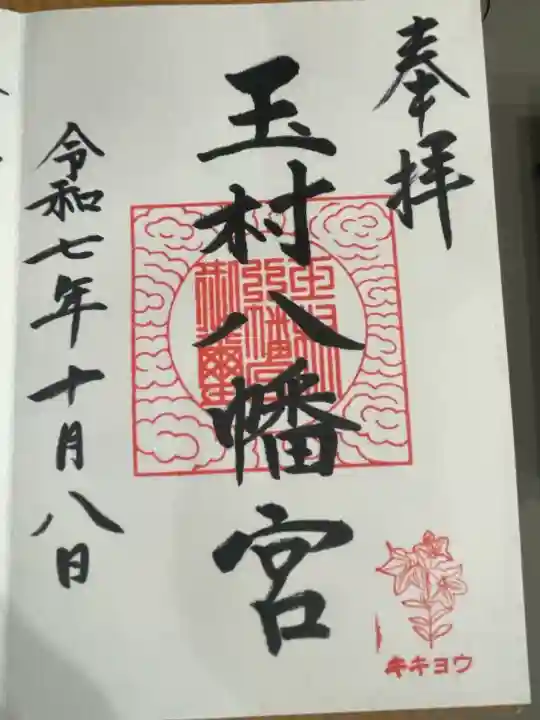 奉拝
玉村八幡宮
令和七年十月八日
キキョウ